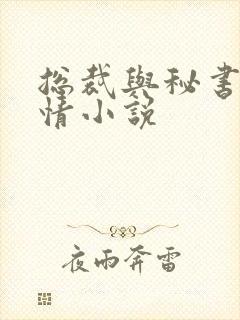 总裁與秘書
情小説
夜雨奔雷